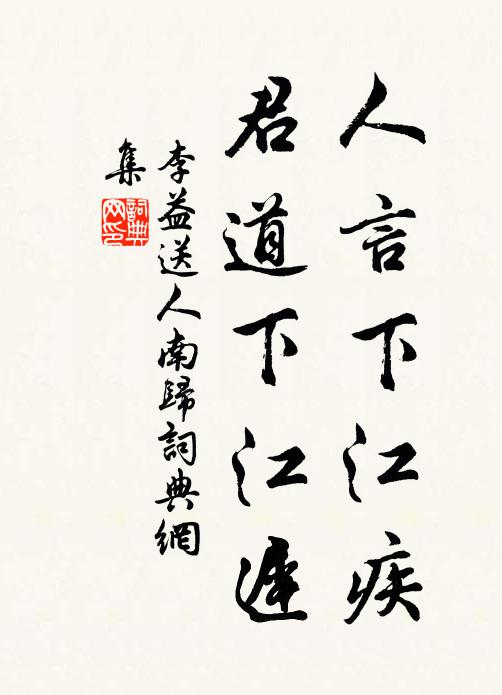 人言下江疾
君道下江遲
李益送人南歸詞典網
集
詞典
网印